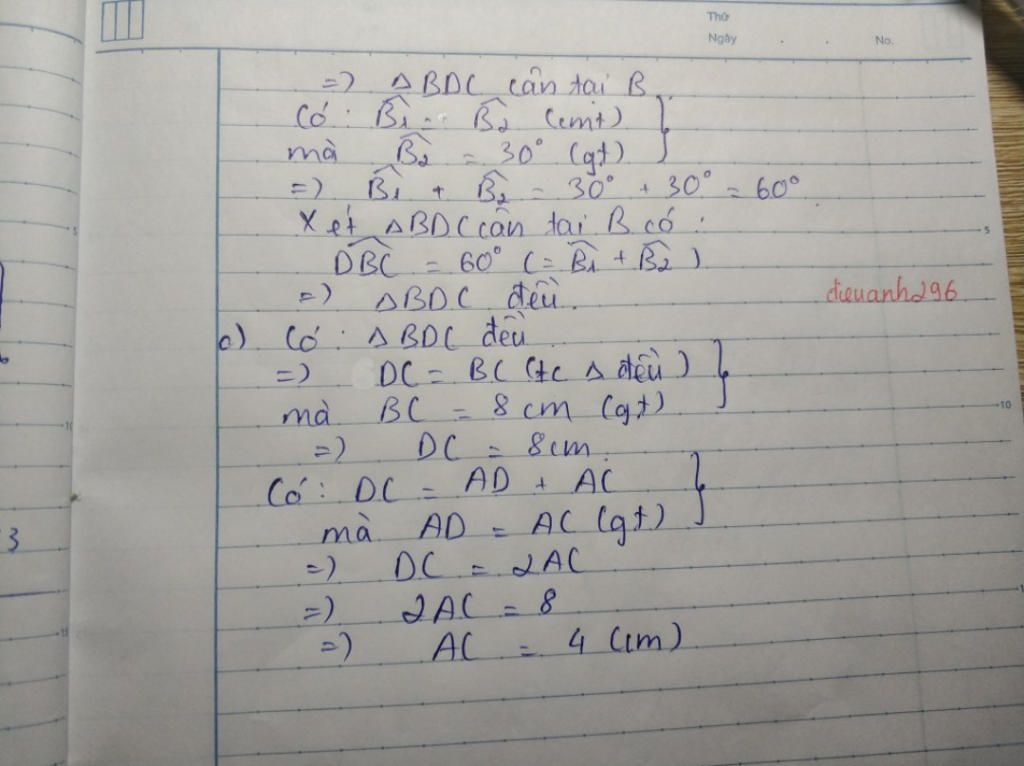 Thứ
Ngày . . No.
=) ΔBDC cân tại B.
Có: B̂₁ = B̂₂ (cmt) }
mà B̂₂ = 30° (gt)
=) B̂₁ + B̂₂ = 30° + 30° = 60°
Xét ΔBDC cân tại B có:
D̂BC = 60° (= B̂₁ + B̂₂)
=) ΔBDC đều.
dieuanh296
c) Có: ΔBDC đều
=) DC = BC (tc Δ đều) }
mà BC = 8cm (gt)
=) DC = 8cm.
Có: DC = AD + AC }
mà AD = AC (gt)
=) DC = 2AC
=) 2AC = 8
=) AC = 4 (cm)
3
5
10